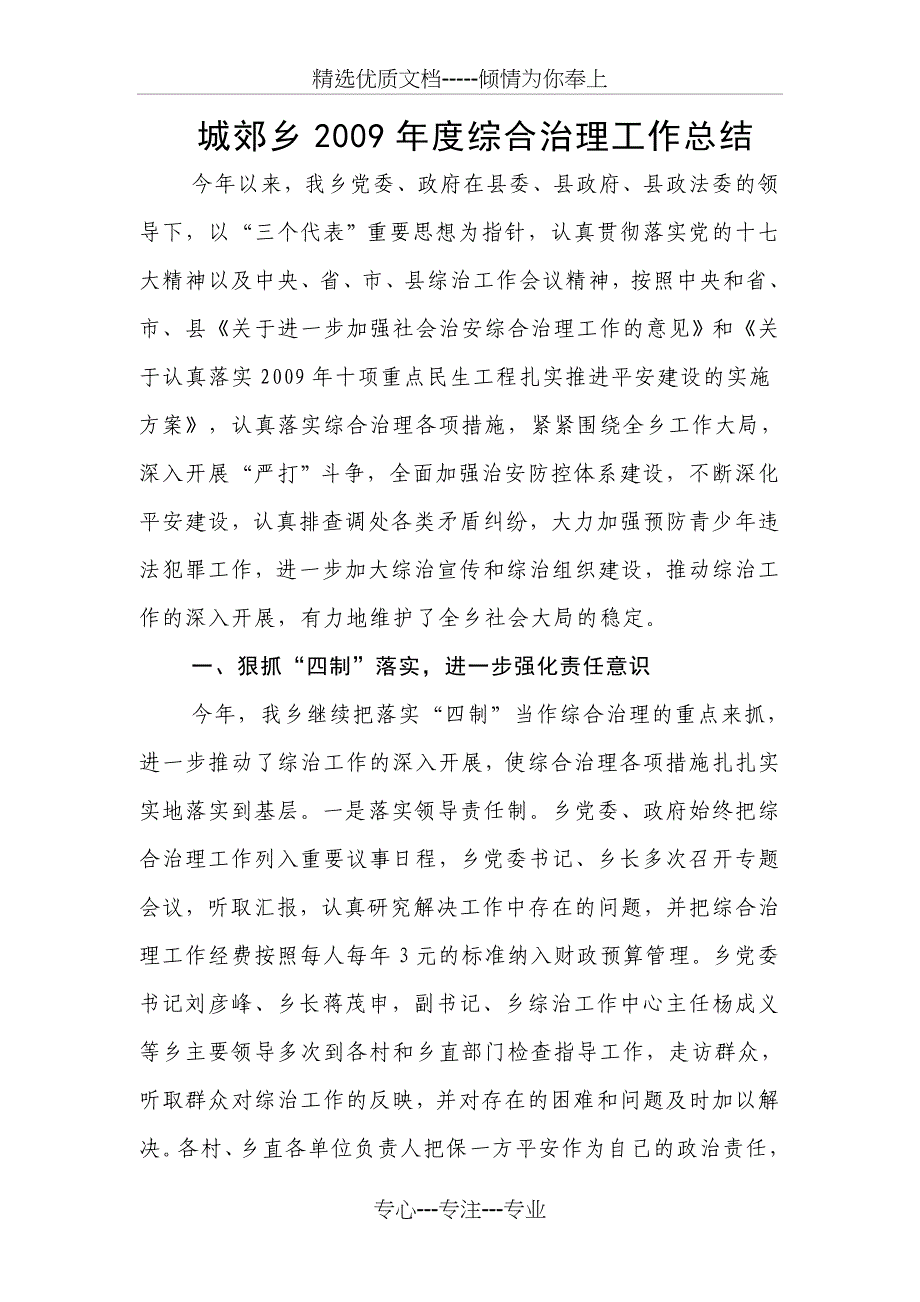 精选优质文档-----倾情为你奉上
城郊乡 2009 年度综合治理工作总结
今年以来，我乡党委、政府在县委、县政府、县政法委的领
导下，以“三个代表”重要思想为指针，认真贯彻落实党的十七
大精神以及中央、省、市、县综治工作会议精神，按照中央和省、
市、县《关于进一步加强社会治安综合治理工作的意见》和《关
于认真落实 2009 年十项重点民生工程扎实推进平安建设的实施
方案》，认真落实综合治理各项措施，紧紧围绕全乡工作大局，
深入开展“严打”斗争，全面加强治安防控体系建设，不断深化
平安建设，认真排查调处各类矛盾纠纷，大力加强预防青少年违
法犯罪工作，进一步加大综治宣传和综治组织建设，推动综治工
作的深入开展，有力地维护了全乡社会大局的稳定。
一、狠抓“四制”落实，进一步强化责任意识
今年，我乡继续把落实“四制”当作综合治理的重点来抓，
进一步推动了综治工作的深入开展，使综合治理各项措施扎扎实
实地落实到基层。一是落实领导责任制。乡党委、政府始终把综
合治理工作列入重要议事日程，乡党委书记、乡长多次召开专题
会议，听取汇报，认真研究解决工作中存在的问题，并把综合治
理工作经费按照每人每年 3 元的标准纳入财政预算管理。乡党委
书记刘彦峰、乡长蒋茂申，副书记、乡综治工作中心主任杨成义
等乡主要领导多次到各村和乡直部门检查指导工作，走访群众，
听取群众对综治工作的反映，并对存在的困难和问题及时加以解
决。各村、乡直各单位负责人把保一方平安作为自己的政治责任，
专心---专注---专业